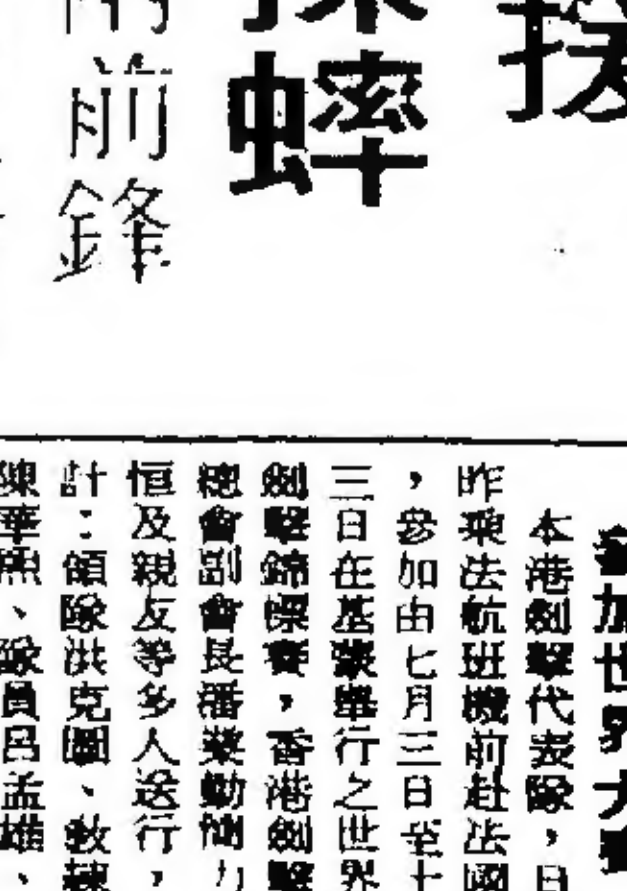 援
蟀
前鋒
參加世界大賽
本港劍擊代表隊，日
昨乘法航班機前赴法國
，參加由七月三日至十
三日在基蒙舉行之世界
劍擊錦標賽，香港劍擊
總會副會長潘業勳簡力
恒及親友等多人送行，
計：領隊洪克圖、教練
陳華煦、隊員呂孟雄、